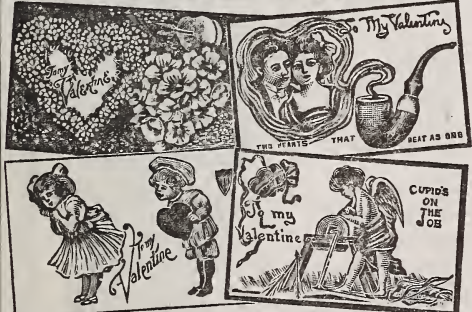 To my
Valentine
To My Valentine
TWO HEARTS THAT BEAT AS ONE
To my
Valentine
To my
Valentine
CUPID'S
ON
THE
JOB